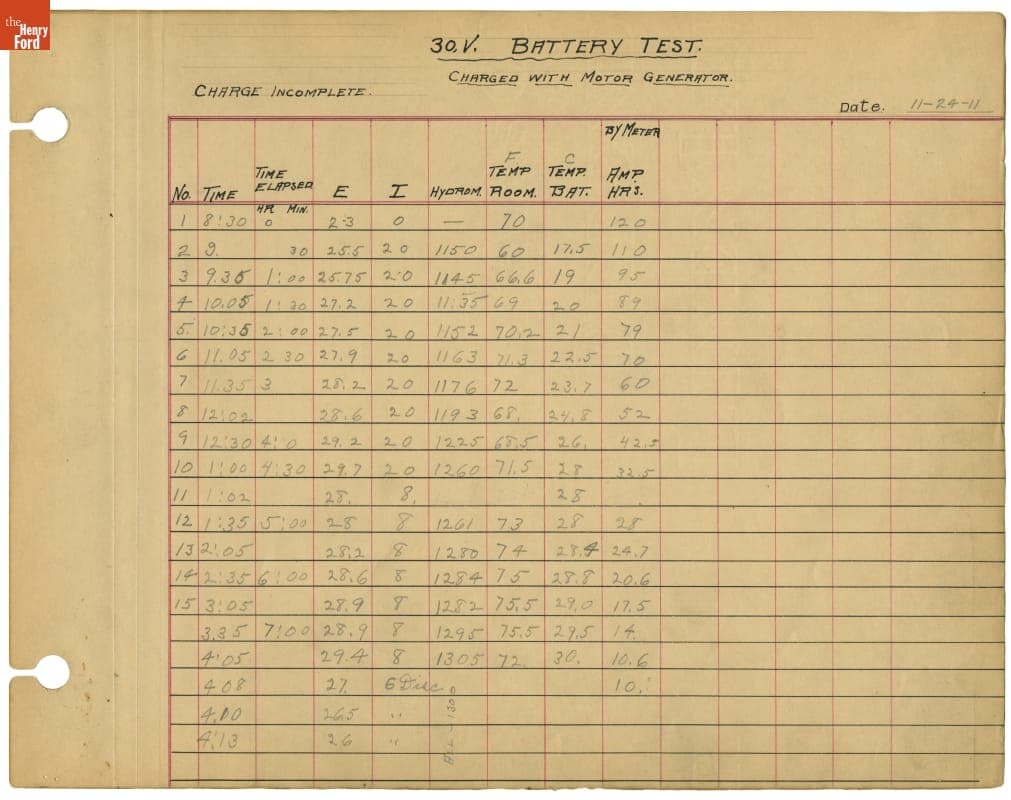 the
Henry
Ford
30.V. BATTERY TEST.
CHARGED WITH MOTOR GENERATOR.
CHARGE INCOMPLETE.
Date. 11-24-11
No. TIME TIME ELAPSED HR MIN. E I HYDROM. F. TEMP ROOM. C TEMP. BAT. BY METER AMP. HRS.
1 8:30 0 23 0 — 70 120
2 9. 30 25.5 20 1150 60 17.5 110
3 9.35 1:00 25.75 20 1145 66.6 19 95
4 10.05 1:30 27.2 20 1135 69 20 89
5. 10:35 2:00 27.5 20 1152 70.2 21 79
6 11.05 2 30 27.9 20 1163 71.3 22.5 70
7 11.35 3 28.2 20 1176 72 23.7 60
8 12:02 28.6 20 1193 68. 24.8 52
9 12:30 4:0 29.2 20 1225 68.5 26. 42.5
10 1:00 4:30 29.7 20 1260 71.5 28 32.5
11 1:02 28. 8. 28
12 1:35 5:00 28 8 1261 73 28 28
13 2:05 28.2 8 1280 74 28.4 24.7
14 2:35 6:00 28.6 8 1284 75 28.8 20.6
15 3:05 28.9 8 1282 75.5 29.0 17.5
3.35 7:00 28.9 8 1295 75.5 29.5 14.
4:05 29.4 8 1305 72. 30. 10.6
4.08 27. 6 Disc. 10.
4.10 26.5 "
4:13 26 "